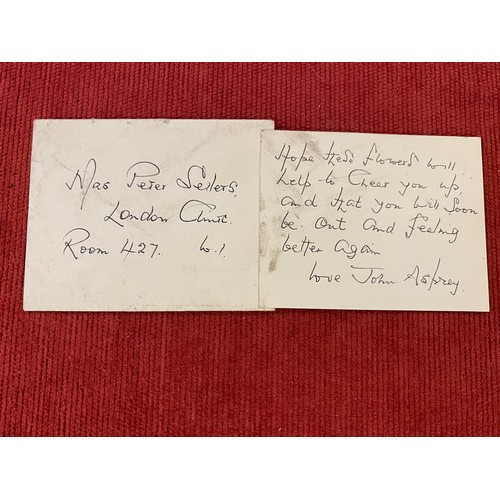 Mrs Peter Sellers,
London Clinic.
Room 427. W.1.
Hope these flowers will
help to cheer you up,
and that you will soon
be out and feeling
better again
Love John Asprey.